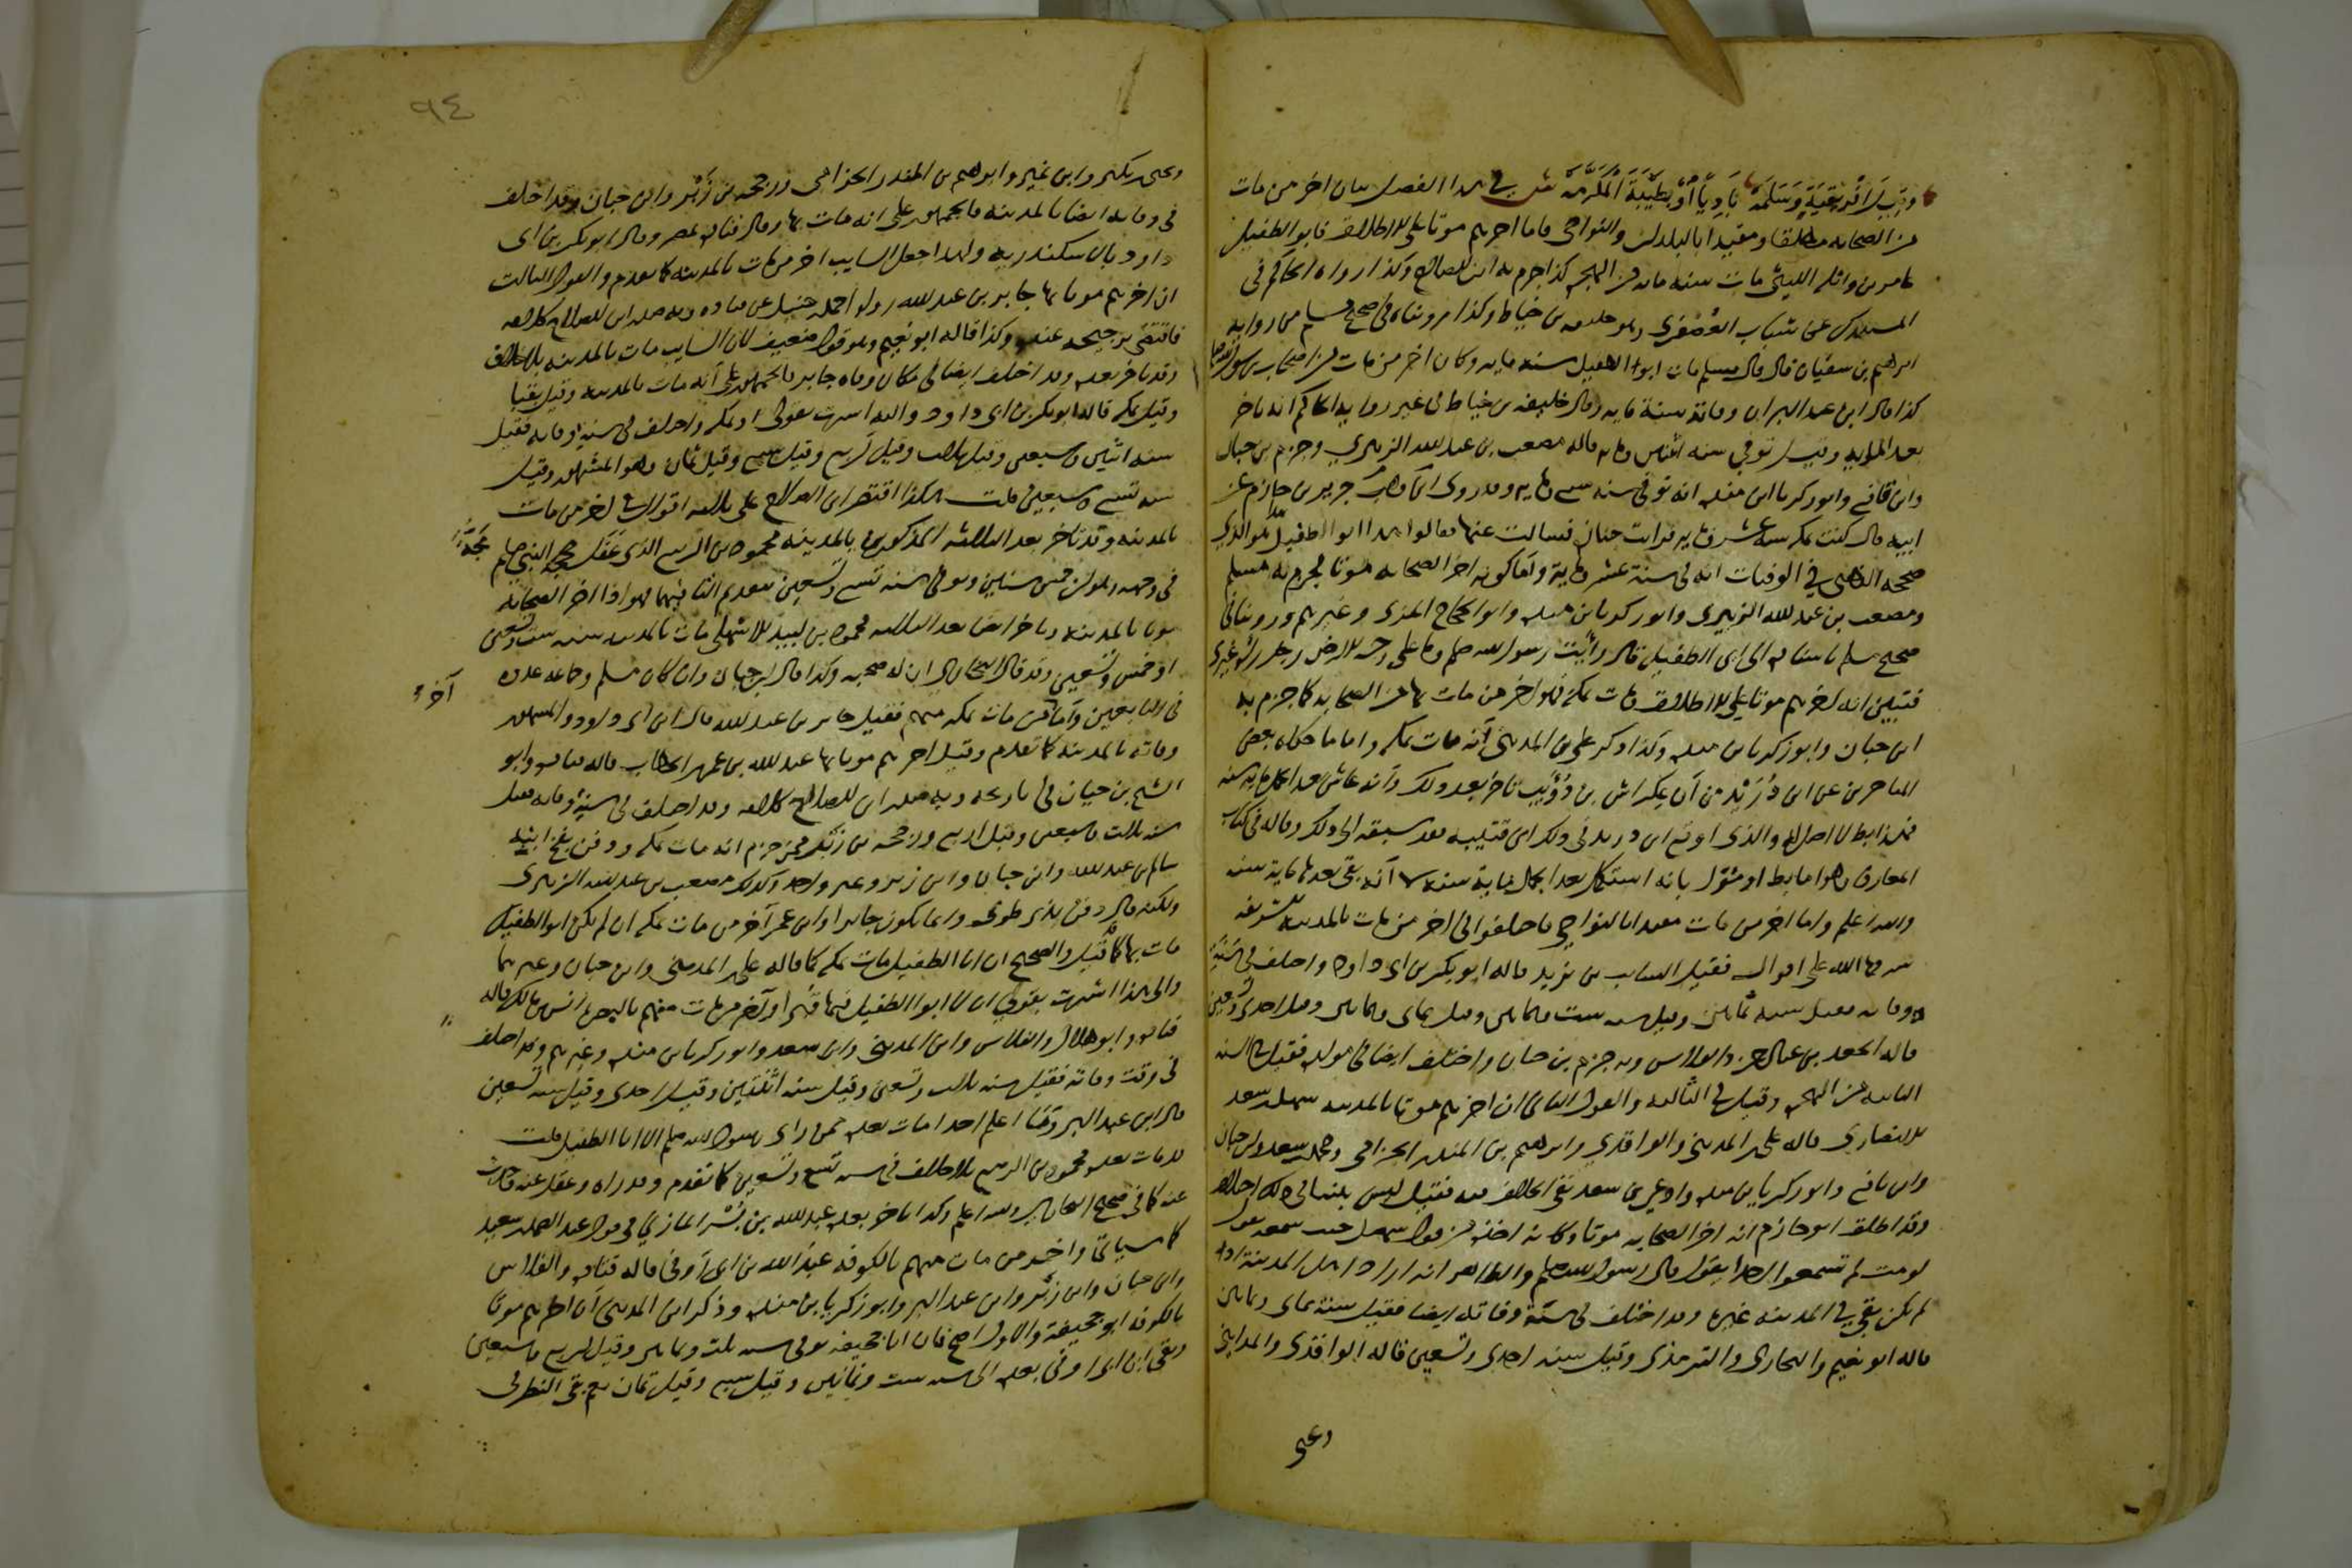 وقبل إفريقية وسلمة باديا أو بطيبة المكرمة ش في هذا الفصل بيان آخر من مات
من الصحابة مطلقا ومقيدا بالبلدان والنواحي فاما آخرهم موتا على الاطلاق فابو الطفيل
عامر بن واثلة الليثي مات سنة مائة من الهجرة كذا جزم به ابن الصلاح وكذا رواه الحاكم في
المستدرك عن شباب العصفري وهو خليفة بن خياط وكذا رويناه في صحيح مسلم من رواية
ابراهيم بن سفيان قال قال مسلم مات ابو الطفيل سنة مائة وكان آخر من مات من اصحاب رسول الله
كذا قال ابن عبد البر ان وفاته سنة مائة وقال خليفة بن خياط في غير رواية الحاكم انه تأخر
بعد المائة وقيل توفي سنة اثنتين ومائة قاله مصعب بن عبد الله الزبيري وجزم بن حبان
وابن قانع وابو زكريا ابن منده انه توفي سنة سبع ومائة وقد روى وهب بن جرير بن حازم عن
ابيه قال كنت بمكة سنة عشر ومائة فرأيت جنازة فسألت عنها فقالوا هذا ابو الطفيل وهو الذي
صححه الذهبي في الوفيات انه في سنة عشر ومائة واما كونه آخر الصحابة موتا فجزم به مسلم
ومصعب بن عبد الله الزبيري وابو زكريا بن منده وابو الحجاج المزي وغيرهم وروينا في
صحيح مسلم باسناده الى ابي الطفيل قال رأيت رسول الله صلم وما على وجه الارض رجل رآه غيري
فتبين انه آخرهم موتا على الاطلاق ومات بمكة فهو آخر من مات بها من الصحابة كما جزم به
ابن حبان وابو زكريا بن منده وكذا ذكر علي بن المديني انه مات بمكة واما ما حكاه بعض
المتاخرين عن ابن دريد من ان عكراش بن ذؤيب تأخر بعد ذلك وانه عاش بعد الجمل مائة سنة
فهذا باطل لا اصل له والذي اوقع ابن دريد في ذلك ابن قتيبة فقد سبقه الى ذلك وقاله في كتاب
المعارف وهو اما باطل او مؤول بانه استكمل بعد الجمل مائة سنة لا انه بقي بعدها مائة سنة
والله اعلم واما آخر من مات مقيدا بالنواحي فاختلفوا في آخر من مات بالمدينة الشريفة
شرفها الله على اقوال فقيل السايب بن يزيد قاله ابو بكر بن ابي داود واختلف في سنة
وفاته فقيل سنة ثمانين وقيل سنة ست وثمانين وقيل ثمان وثمانين وقيل احدى وتسعين
قاله الجعد بن عبد الرحمن والفلاس وبه جزم بن حبان واختلف ايضا في مولده فقيل في السنة
الثانية من الهجرة وقيل في الثالثة والقول الثاني ان آخرهم موتا بالمدينة سهل بن سعد
الانصاري قاله علي بن المديني والواقدي وابراهيم بن المنذر الحزامي ومحمد بن سعد وابن حبان
وابن قانع وابو زكريا بن منده وادعى بن سعد نفي الخلاف فيه فقال ليس بيننا في ذلك اختلاف
وقد اطلق ابو حازم انه آخر الصحابة موتا وكانه اخذه من قول سهل حيث سمعه يقول
لو مت لم تسمعوا احدا يقول قال رسول الله صلم والظاهر انه اراد اهل المدينة اذ
لم يكن بقي في المدينة غيره وقد اختلف في سنة وفاته ايضا فقيل سنة ثمان وثمانين
قاله ابو نعيم والبخاري والترمذي وقيل سنة احدى وتسعين قاله الواقدي والمدايني
ويحيى
٩٤
ويحيى بن بكير وابن نمير وابراهيم بن المنذر الحزامي ورجحه بن زبر وابن حبان وقد اختلف
في وفاته ايضا بالمدينة فالجمهور على انه مات بها وقال قتادة بمصر وقال ابو بكر بن ابي
داود بالاسكندرية ولهذا جعل السايب آخر من مات بالمدينة كما تقدم والقول الثالث
ان آخرهم موتا بها جابر بن عبد الله رواه احمد بن حنبل عن قتادة وبه صدر ابن الصلاح كلامه
فاقتضى ترجيحه عنده وكذا قاله ابو نعيم وهو قول ضعيف لان السايب مات بالمدينة بلا خلاف
وقد تأخر بعده وقد اختلف ايضا في مكان وفاة جابر فالجمهور على انه مات بالمدينة وقيل بقبا
وقيل بمكة قاله ابو بكر بن ابي داود واليه اشرت بقولي او بمكة واختلف في سنة وفاته فقيل
سنة اثنتين وسبعين وقيل ثلاث وقيل اربع وقيل سبع وقيل ثمان وهو المشهور وقيل
سنة تسع وسبعين قلت هكذا اقتصر ابن الصلاح على ثلاثة اقوال في آخر من مات
بالمدينة وقد تأخر بعد الثلاثة المذكورين بالمدينة محمود بن الربيع الذي عقل مجة النبي صلم
مجة
في وجهه وهو ابن خمس سنين وتوفي سنة تسع وتسعين بتقديم التاء فيهما فهو اذا آخر الصحابة
موتا بالمدينة وتأخر ايضا بعد الثلاثة محمود بن لبيد الاشهلي مات بالمدينة سنة ست وتسعين
او خمس وتسعين وقد قال البخاري ان له صحبة وكذا قال ابن حبان وان كان مسلم وجماعة عدوه
في التابعين واما آخر من مات بمكة منهم فقيل جابر بن عبد الله قاله ابن ابي داود والمشهور
آخر
وفاته بالمدينة كما تقدم وقيل آخرهم موتا بها عبد الله بن عمر بن الخطاب قاله قتادة وابو
الشيخ بن حيان في تاريخه وبه صدر ابن الصلاح كلامه وقد اختلف في سنة وفاته فقيل
سنة ثلاث وسبعين وقيل اربع ورجحه بن زبر وممن جزم انه مات بمكة ودفن بفخ ابنه
سالم بن عبد الله وابن حبان وابن زبر وغير واحد وكذلك مصعب بن عبد الله الزبيري
ولكنه قال دفن بذي طوى وانما يكون جابر او ابن عمر آخر من مات بمكة ان لم يكن ابو الطفيل
مات بها كما قيل والصحيح ان ابا الطفيل مات بمكة كما قاله علي بن المديني وابن حبان وغيرهما
والى هذا اشرت بقولي ان لا ابو الطفيل فيها قبرا وآخر من مات منهم بالبصرة انس بن مالك قاله
قتادة وابو هلال والفلاس وابن المديني وابن سعد وابو زكريا بن منده وغيرهم وقد اختلف
في وقت وفاته فقيل سنة ثلاث وتسعين وقيل سنة اثنتين وقيل احدى وقيل سنة تسعين
قال ابن عبد البر وما اعلم احدا مات بعده ممن راى رسول الله صلم الا ابا الطفيل قلت
قد مات بعده محمود بن الربيع بلا خلاف في سنة تسع وتسعين كما تقدم وقد رآه وعقل عنه وحدث
عنه كما في صحيح البخاري والله اعلم وكذا تأخر بعده عبد الله بن بسر المازني في قول عبد الصمد بن سعيد
كما سياتي وآخر من مات منهم بالكوفة عبد الله بن ابي اوفى قاله قتادة والفلاس
وابن حبان وابن زبر وابن عبد البر وابو زكريا بن منده وذكر ابن المديني ان آخرهم موتا
بالكوفة ابو جحيفة والاول اصح فان ابا جحيفة توفي سنة ثلاث وثمانين وقيل اربع وسبعين
وبقي ابن ابي اوفى بعده الى سنة ست وثمانين وقيل سبع وقيل ثمان نعم بقي النظر في